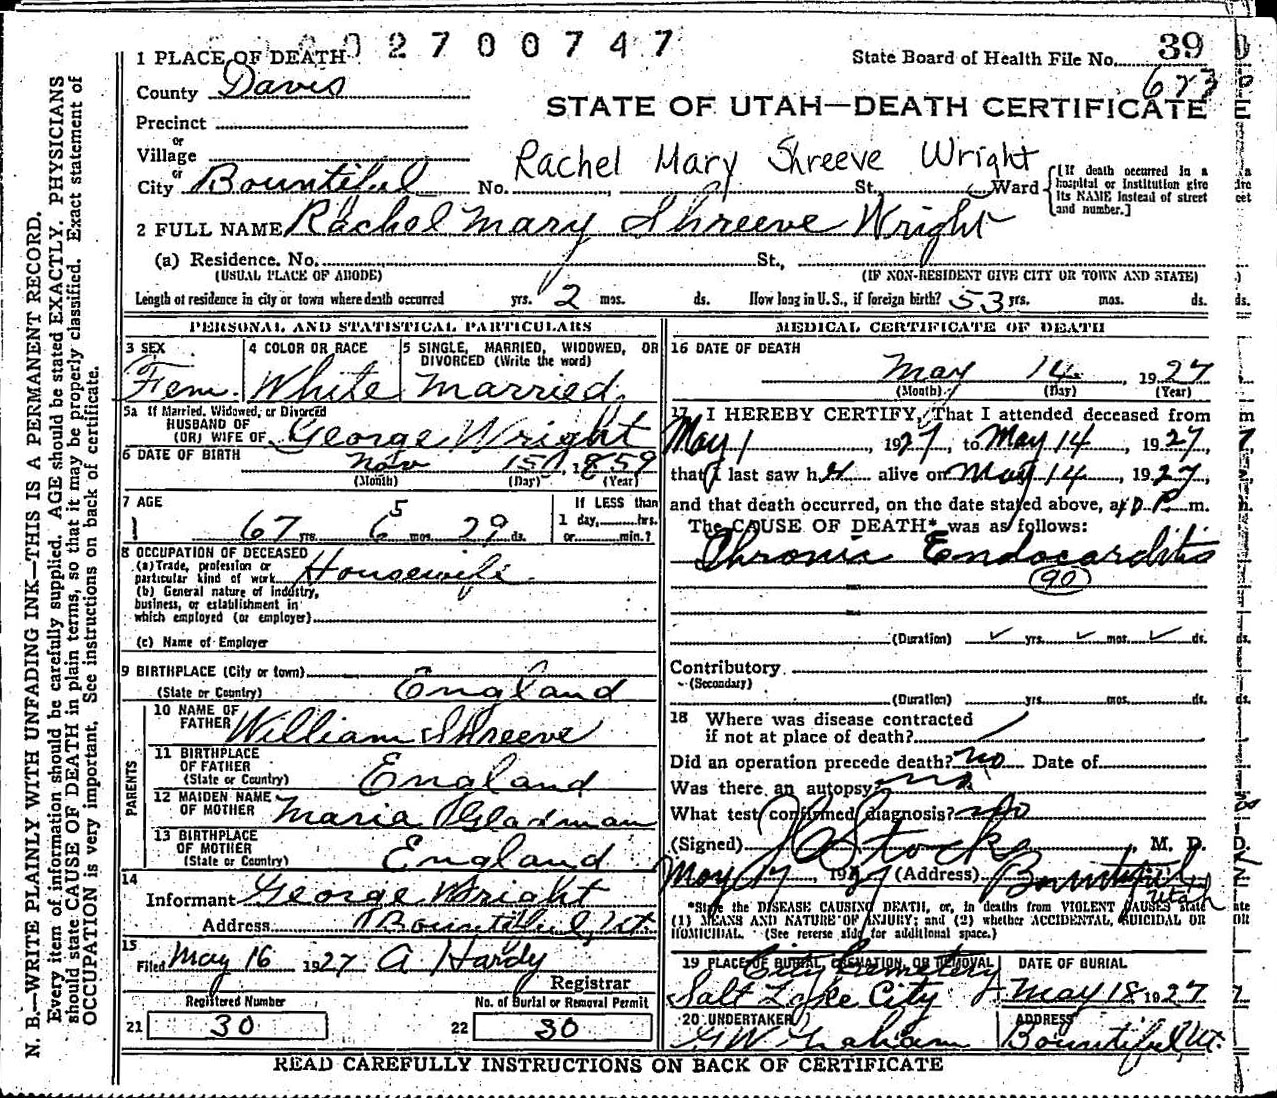 2700747
1 PLACE OF DEATH
State Board of Health File No. 39
County Davis
673
STATE OF UTAH—DEATH CERTIFICATE
Precinct
or
Village
Rachel Mary Shreeve Wright
or
City Bountiful No. St., Ward [If death occurred in a hospital or Institution give its NAME instead of street and number.]
2 FULL NAME Rachel Mary Shreeve Wright
(a) Residence. No. St.,
(USUAL PLACE OF ABODE) (IF NON-RESIDENT GIVE CITY OR TOWN AND STATE)
Length of residence in city or town where death occurred yrs. 2 mos. ds. How long in U.S., if foreign birth? 53 yrs. mos. ds.
PERSONAL AND STATISTICAL PARTICULARS
3 SEX 4 COLOR OR RACE 5 SINGLE, MARRIED, WIDOWED, OR
DIVORCED (Write the word)
Fem. White Married
5a If Married, Widowed, or Divorced
HUSBAND OF
(OR) WIFE OF George Wright
6 DATE OF BIRTH Nov 15, 1859
(Month) (Day) (Year)
7 AGE If LESS than
67 yrs. 6 5 mos. 29 ds. 1 day, hrs.
or min.?
8 OCCUPATION OF DECEASED
(a) Trade, profession or
particular kind of work Housewife
(b) General nature of industry,
business, or establishment in
which employed (or employer)
(c) Name of Employer
9 BIRTHPLACE (City or town)
(State or Country) England
10 NAME OF
FATHER William Shreeve
11 BIRTHPLACE
OF FATHER
(State or Country) England
PARENTS
12 MAIDEN NAME
OF MOTHER Maria
13 BIRTHPLACE
OF MOTHER
(State or Country) England
14
Informant George Wright
Address Bountiful, Ut.
15
Filed May 16 1927 A Hardy
Registrar
Registered Number No. of Burial or Removal Permit
21 30 22 30
MEDICAL CERTIFICATE OF DEATH
16 DATE OF DEATH
May 14, 1927
(Month) (Day) (Year)
17 I HEREBY CERTIFY, That I attended deceased from
May 1 1927, to May 14, 1927,
that I last saw her alive on May 14, 1927,
and that death occurred, on the date stated above, at P. m.
The CAUSE OF DEATH* was as follows:
Chronic Endocarditis
90
(Duration) yrs. mos. ds.
Contributory
(Secondary)
(Duration) yrs. mos. ds.
18 Where was disease contracted
if not at place of death?
Did an operation precede death? no Date of
Was there an autopsy? no
What test confirmed diagnosis? no
(Signed) Stocks, M. D.
May 17, 1927 (Address) Bountiful
Utah
*State the DISEASE CAUSING DEATH, or, in deaths from VIOLENT CAUSES state
(1) MEANS AND NATURE OF INJURY; and (2) whether ACCIDENTAL, SUICIDAL OR
HOMICIDAL. (See reverse side for additional space.)
19 PLACE OF BURIAL, CREMATION, OR REMOVAL DATE OF BURIAL
City Cemetery
Salt Lake City May 18 1927
20 UNDERTAKER ADDRESS
GW Graham Bountiful, Ut.
READ CAREFULLY INSTRUCTIONS ON BACK OF CERTIFICATE
N. B.—WRITE PLAINLY WITH UNFADING INK—THIS IS A PERMANENT RECORD.
Every item of information should be carefully supplied. AGE should be stated EXACTLY. PHYSICIANS
should state CAUSE OF DEATH in plain terms, so that it may be properly classified. Exact statement of
OCCUPATION is very important. See instructions on back of certificate.